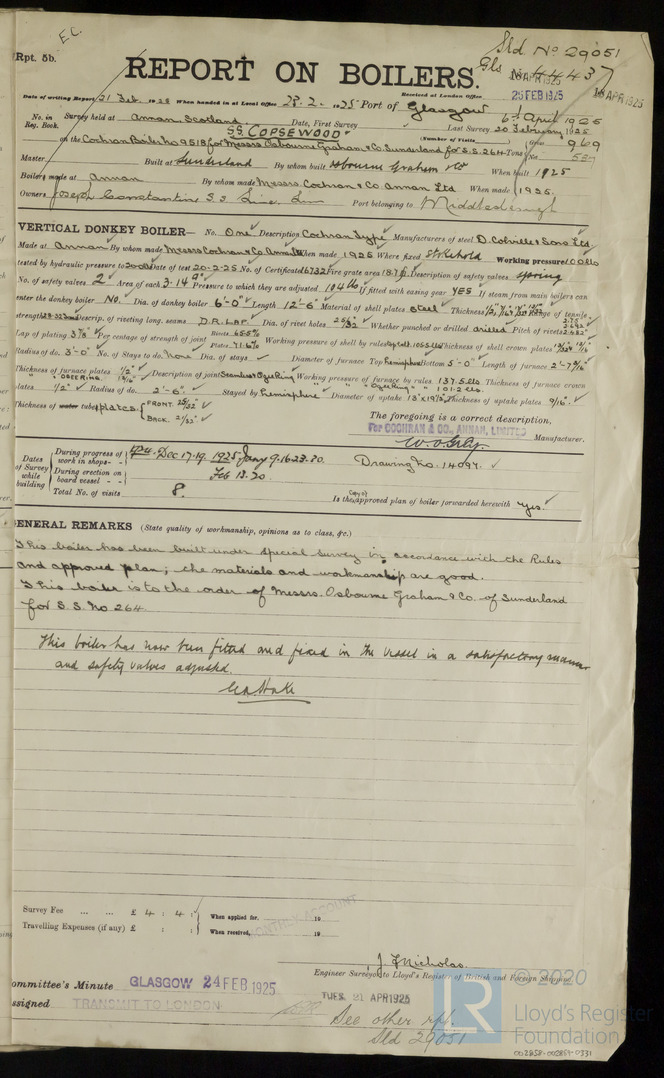 E.C.
Sld No 29051
Rpt. 5b.
Gls No 44437
REPORT ON BOILERS.
25 FEB 1925
APR 1925
Date of writing Report 21 Feb 1925 When handed in at Local Office 23.2.1925 Port of Glasgow
Received at London Office
No. in Reg. Book. Survey held at Annan, Scotland Date, First Survey 6th April 1925
Last Survey 20 February 1925
SS. COPSEWOOD
(Number of Visits)
on the Cochran Boiler No 9518 for Messrs Osbourne Graham & Co Sunderland for S.S. 264 Tons Gross 969 Net 557
Master Built at Sunderland By whom built Osbourne Graham & Co When built 1925
Boilers made at Annan By whom made Messrs Cochran & Co. Annan Ltd When made 1925.
Owners Joseph Constantine S S Line Port belonging to Middlesbrough
VERTICAL DONKEY BOILER— No. One Description Cochran Type Manufacturers of steel D. Colville & Sons Ltd
Made at Annan By whom made Messrs Cochran & Co. Annan Ltd When made 1925 Where fixed Stokehold Working pressure 100 lbs
tested by hydraulic pressure to 200 lbs Date of test 20-2-25 No. of Certificate 16732 Fire grate area 18.7 Description of safety valves spring
No. of safety valves 2 Area of each 3.14 Pressure to which they are adjusted 104 lb If fitted with easing gear YES If steam from main boilers can
enter the donkey boiler No. Dia. of donkey boiler 6'-0" Length 12'-6" Material of shell plates Steel Thickness Range of tensile
strength Descrip. of riveting long. seams D.R. LAP. Dia. of rivet holes Whether punched or drilled drilled Pitch of rivets
Lap of plating 3 7/8 Per centage of strength of joint Rivets Plates 71.6% Working pressure of shell by rules Thickness of shell crown plates
Radius of do. 3'-0" No. of Stays to do. none Dia. of stays Diameter of furnace Top hemisphere Bottom 5'-0" Length of furnace 2'-7
Thickness of furnace plates 1/2" Description of joint Seamless Ogee Ring Working pressure of furnace by rules 137.5 lbs Thickness of furnace crown
" OGEE RING " " OGEE RING " " 101.2 lbs.
plates 1/2" Radius of do. 2'-6" Stayed by hemisphere Diameter of uptake Thickness of uptake plates 9/16
Thickness of water tube plates FRONT. 25/32 BACK. 21/32
The foregoing is a correct description,
For COCHRAN & CO., ANNAN, LIMITED
Manufacturer.
Dates of Survey while building
During progress of work in shops - - 1924. Dec 17.19. 1925 Jany 9.16.23.30.
During erection on board vessel - - Feb 13.20.
Total No. of visits 8.
Drawing No. 14097.
Is the copy of approved plan of boiler forwarded herewith Yes.
GENERAL REMARKS (State quality of workmanship, opinions as to class, &c.)
This boiler has been built under special survey in accordance with the Rules
and approved plan; the materials and workmanship are good.
This boiler is to the order of Messrs. Osbourne Graham & Co. of Sunderland
for S.S. No. 264.
This boiler has now been fitted and fixed in the vessel in a satisfactory manner
and safety valves adjusted.
Survey Fee ... ... £ 4 : 4 : When applied for, 19
Travelling Expenses (if any) £ : : When received, 19
MONTHLY ACCOUNT
J F Nicholas
Engineer Surveyor to Lloyd's Register of British and Foreign Shipping.
Committee's Minute GLASGOW 24 FEB. 1925
TUES. 21 APR 1925
Assigned TRANSMIT TO LONDON
See other rpt.
Sld 29051
LR
© 2020
Lloyd's Register
Foundation
002858-002859-0331